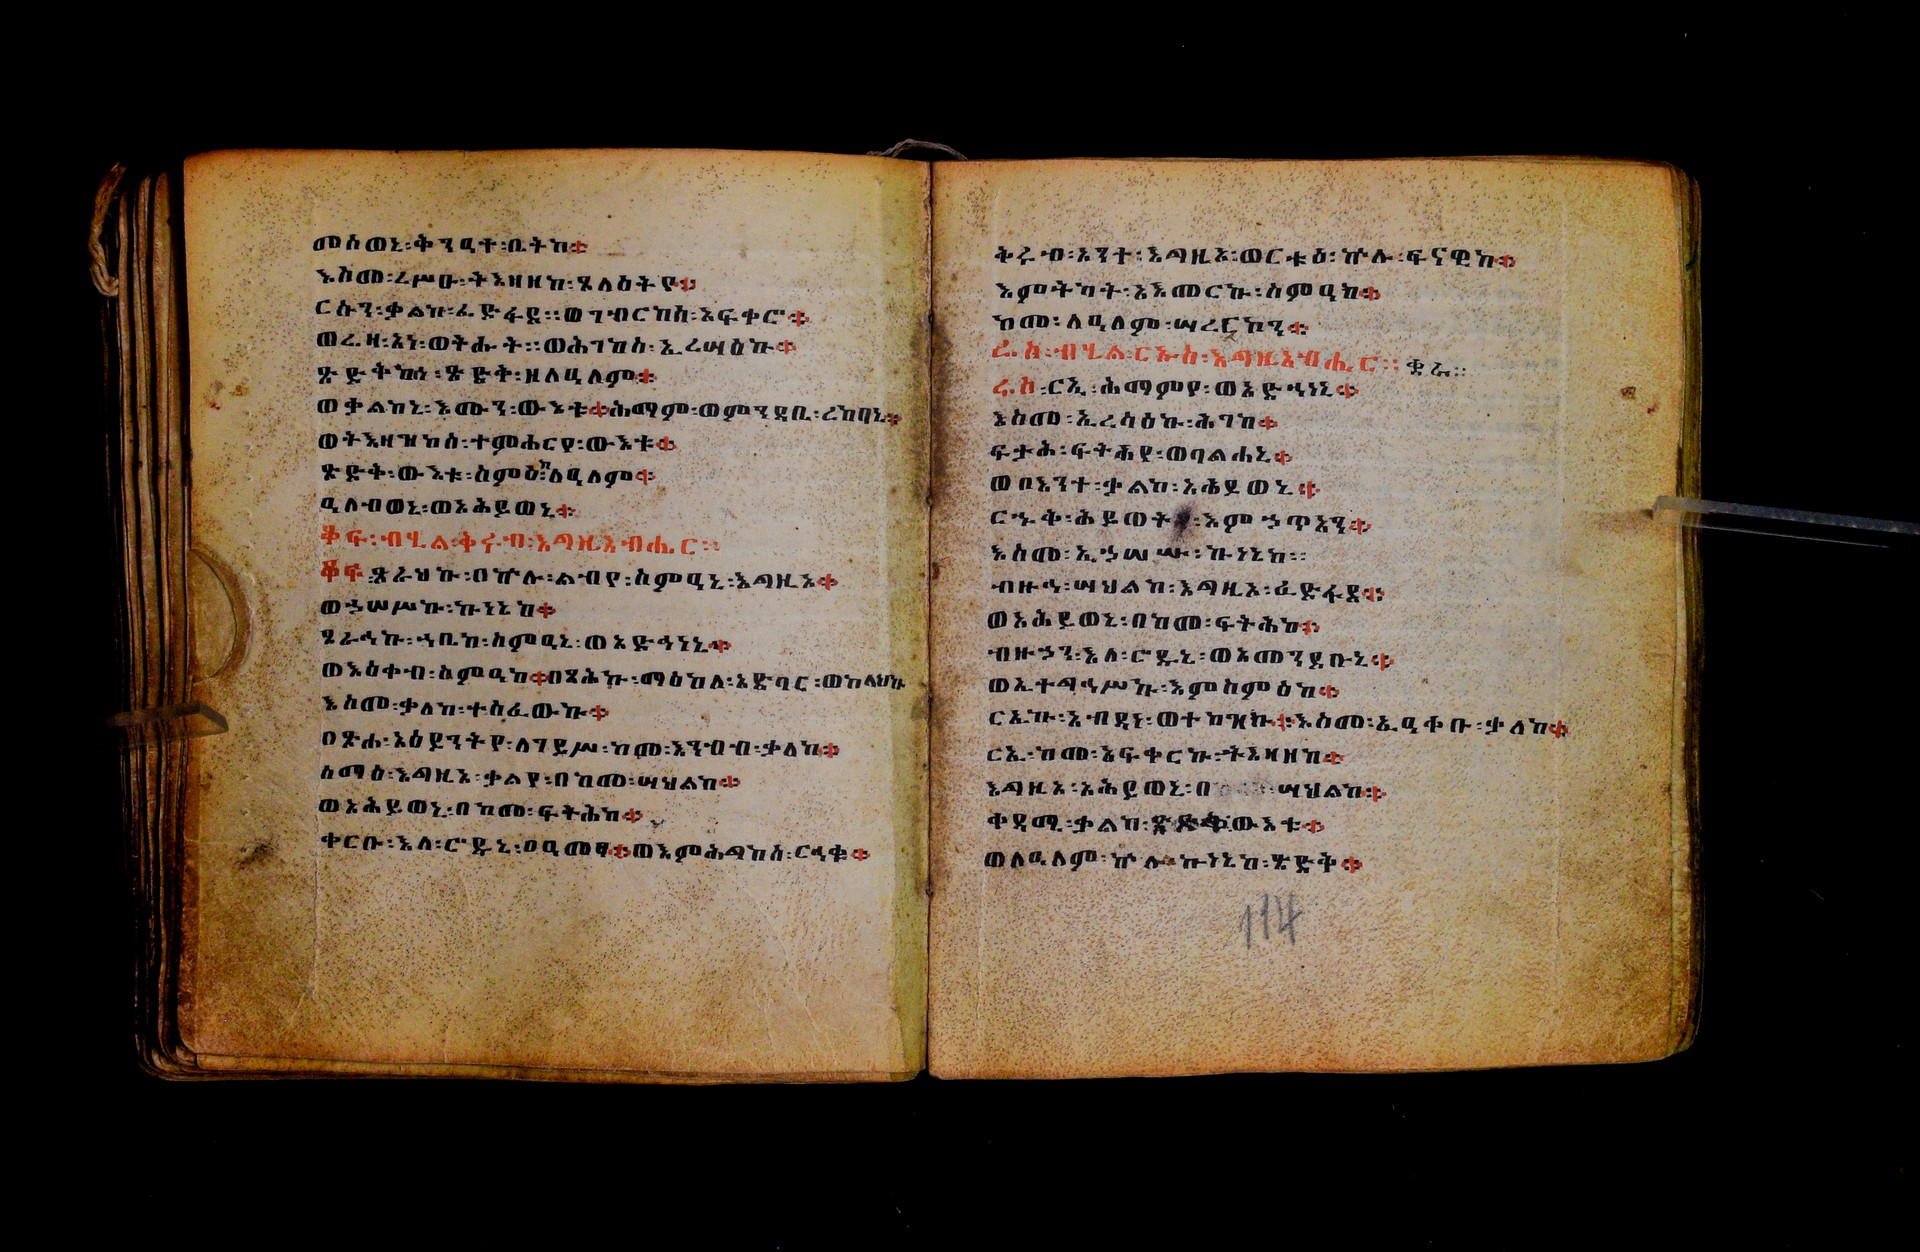 መሰወኒ፡ቅንዓተ፡ቤትከ።
እስመ፡ረሥዑ፡ትእዛዘከ፡ጸላእትየ።
ርሱን፡ቃልከ፡ፈድፋደ፡፡ወገብርከሰ፡አፍቀሮ።
ወሬዛ፡አነ፡ወትሑት፡፡ወሕገከሰ፡ኢረሣዕኩ።
ጽድቅከኒ፡ጽድቅ፡ዘለዓለም።
ወቃልከኒ፡እሙን፡ውእቱ።ሕማም፡ወምንዳቤ፡ረከበኒ።
ወትእዛዝከሰ፡ተምህርየ፡ውእቱ።
ጽድቅ፡ውእቱ፡ስምዕከ፡ለዓለም።
ዓለብወኒ፡ወአሕይወኒ።
ቆፍ፡ብሂል፡ቅሩብ፡እግዚአብሔር፡፡
ቆፍ፡ጸራህኩ፡በኵሉ፡ልብየ፡ስምዓኒ፡እግዚኦ።
ወኃሠሥኩ፡ኵነኔከ።
ጸራኅኩ፡ኀቤከ፡ስምዓኒ፡ወአድኅነኒ።
ወእዕቀብ፡ስምዓከ።በጻሕኩ፡ማዕከለ፡አድባር፡ወከላህኩ
እስመ፡ቃለከ፡ተሰፈውኩ።
በጽሐ፡አዕይንትየ፡ለገይሥ፡ከመ፡አንብብ፡ቃለከ።
ስማዕ፡እግዚኦ፡ቃልየ፡በከመ፡ሣህልከ።
ወአሕይወኒ፡በከመ፡ፍትሕከ።
ቀርቡ፡እለ፡ሮዱኒ፡ዐዓመፃ።ወእምሕግከሰ፡ርኅቁ።
ቅሩብ፡አንተ፡እግዚኦ፡ወርቱዕ፡ኵሉ፡ፍናዊከ።
እምትካት፡አእመርኩ፡ስምዓከ።
ከመ፡ለዓለም፡ሣረርኮን።
ሬስ፡ብሂል፡ርኡስ፡እግዚአብሔር፡፡
ሬስ፡ርኢ፡ሕማምየ፡ወአድኅነኒ።
እስመ፡ኢረሳዕኩ፡ሕገከ።
ፍታሕ፡ፍትሕየ፡ወባልሐኒ።
ወበእንተ፡ቃልከ፡አሕይወኒ።
ርኁቅ፡ሕይወት፡እምኃጥአን።
እስመ፡ኢኃሠሡ፡ኵነኔከ፡፡
ብዙኅ፡ሣህልከ፡እግዚኦ፡ፈድፋደ።
ወአሕይወኒ፡በከመ፡ፍትሕከ።
ብዙኃን፡እለ፡ሮዱኒ፡ወአመንደቡኒ።
ወኢተግኅሥኩ፡እምስምዕከ።
ርኢኩ፡አብዳነ፡ወተከዝኩ።እስመ፡ኢዓቀቡ፡ቃለከ።
ርኢ፡ከመ፡አፍቀርኩ፡ትእዛዘከ።
እግዚኦ፡አሕይወኒ፡በ ሣህልከ።
ቀዳሚ፡ቃልከ፡ጽድቅ፡ውእቱ።
ወለዓለም፡ኵሉ፡ኵነኔከ፡ጽድቅ።
114